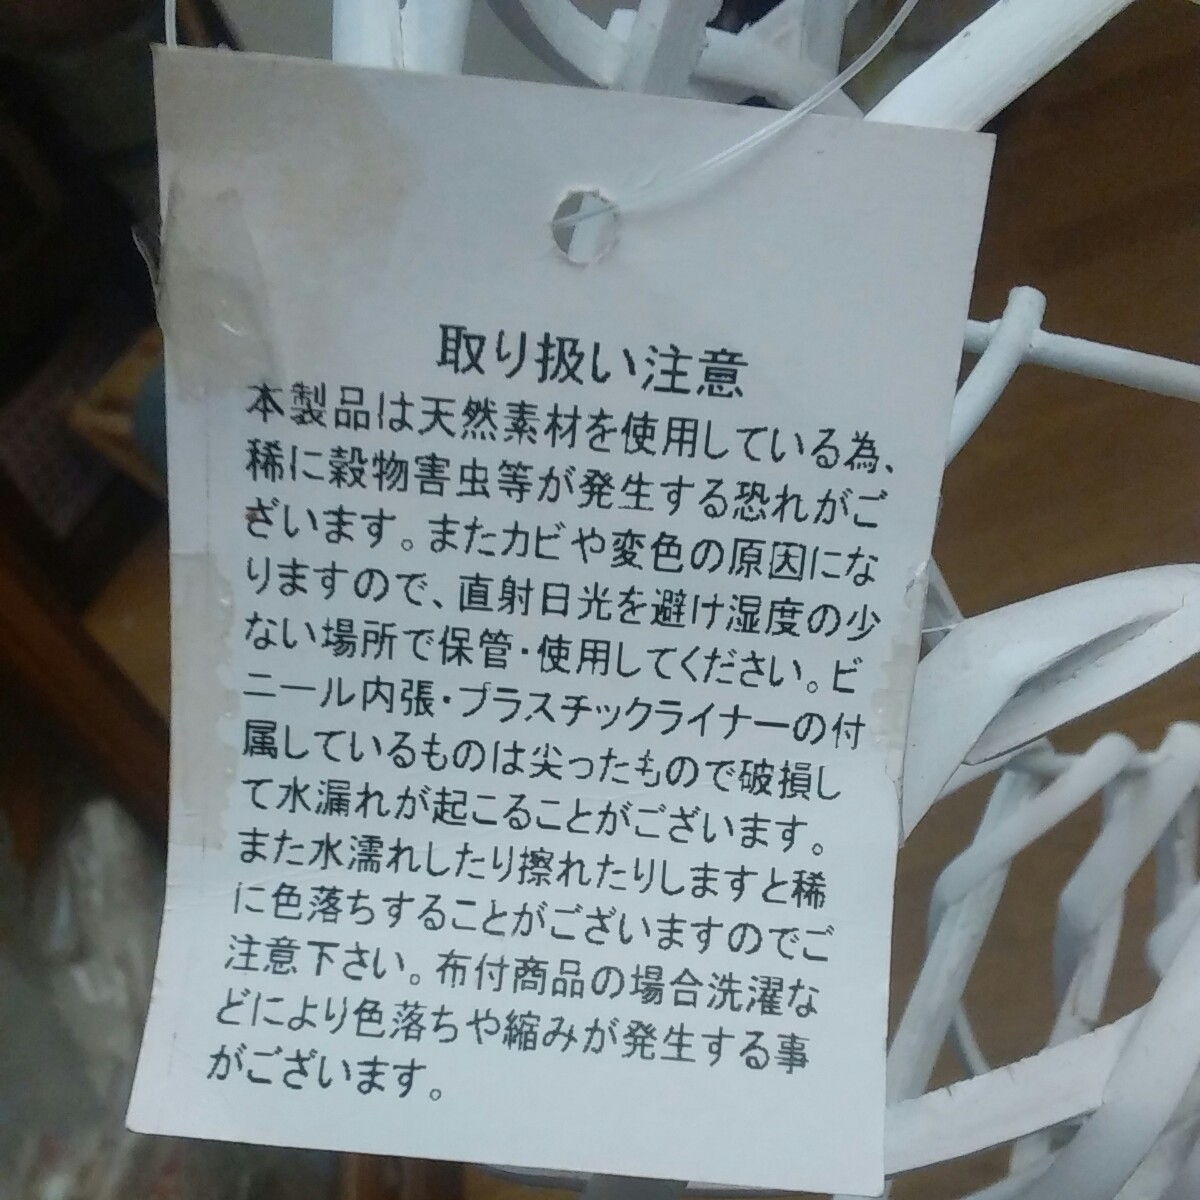 取り扱い注意
本製品は天然素材を使用している為、
稀に穀物害虫等が発生する恐れがご
ざいます。またカビや変色の原因にな
りますので、直射日光を避け湿度の少
ない場所で保管・使用してください。ビ
ニール内張・プラスチックライナーの付
属しているものは尖ったもので破損し
て水漏れが起こることがございます。
また水濡れしたり擦れたりしますと稀
に色落ちすることがございますのでご
注意下さい。布付商品の場合洗濯な
どにより色落ちや縮みが発生する事
がございます。